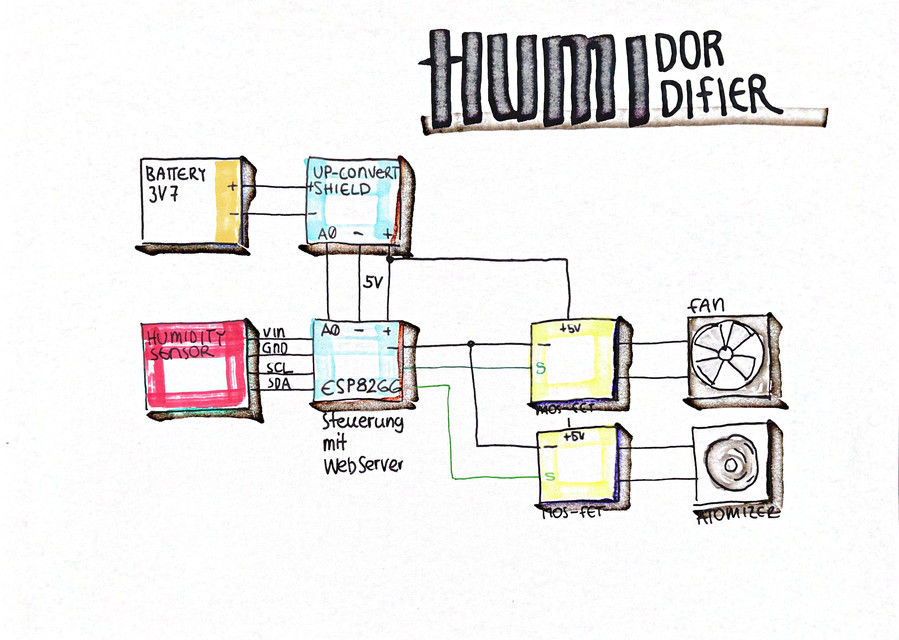 HUMI DOR
DIFIER
BATTERY
3V7
+
-
UP-CONVERT
+SHIELD
-
A0 - +
5V
HUMIDITY
SENSOR
VIN
GND
SCL
SDA
A0 - +
-
ESP8266
Steuerung
mit
WebServer
+5V
-
S
MOS-FET
FAN
+5V
-
S
MOS-FET
ATOMIZER